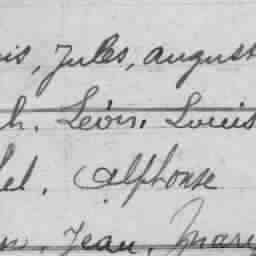 is, Jules, August
h. Léon. Louis
el. Alphonse
n, Jean, Mary